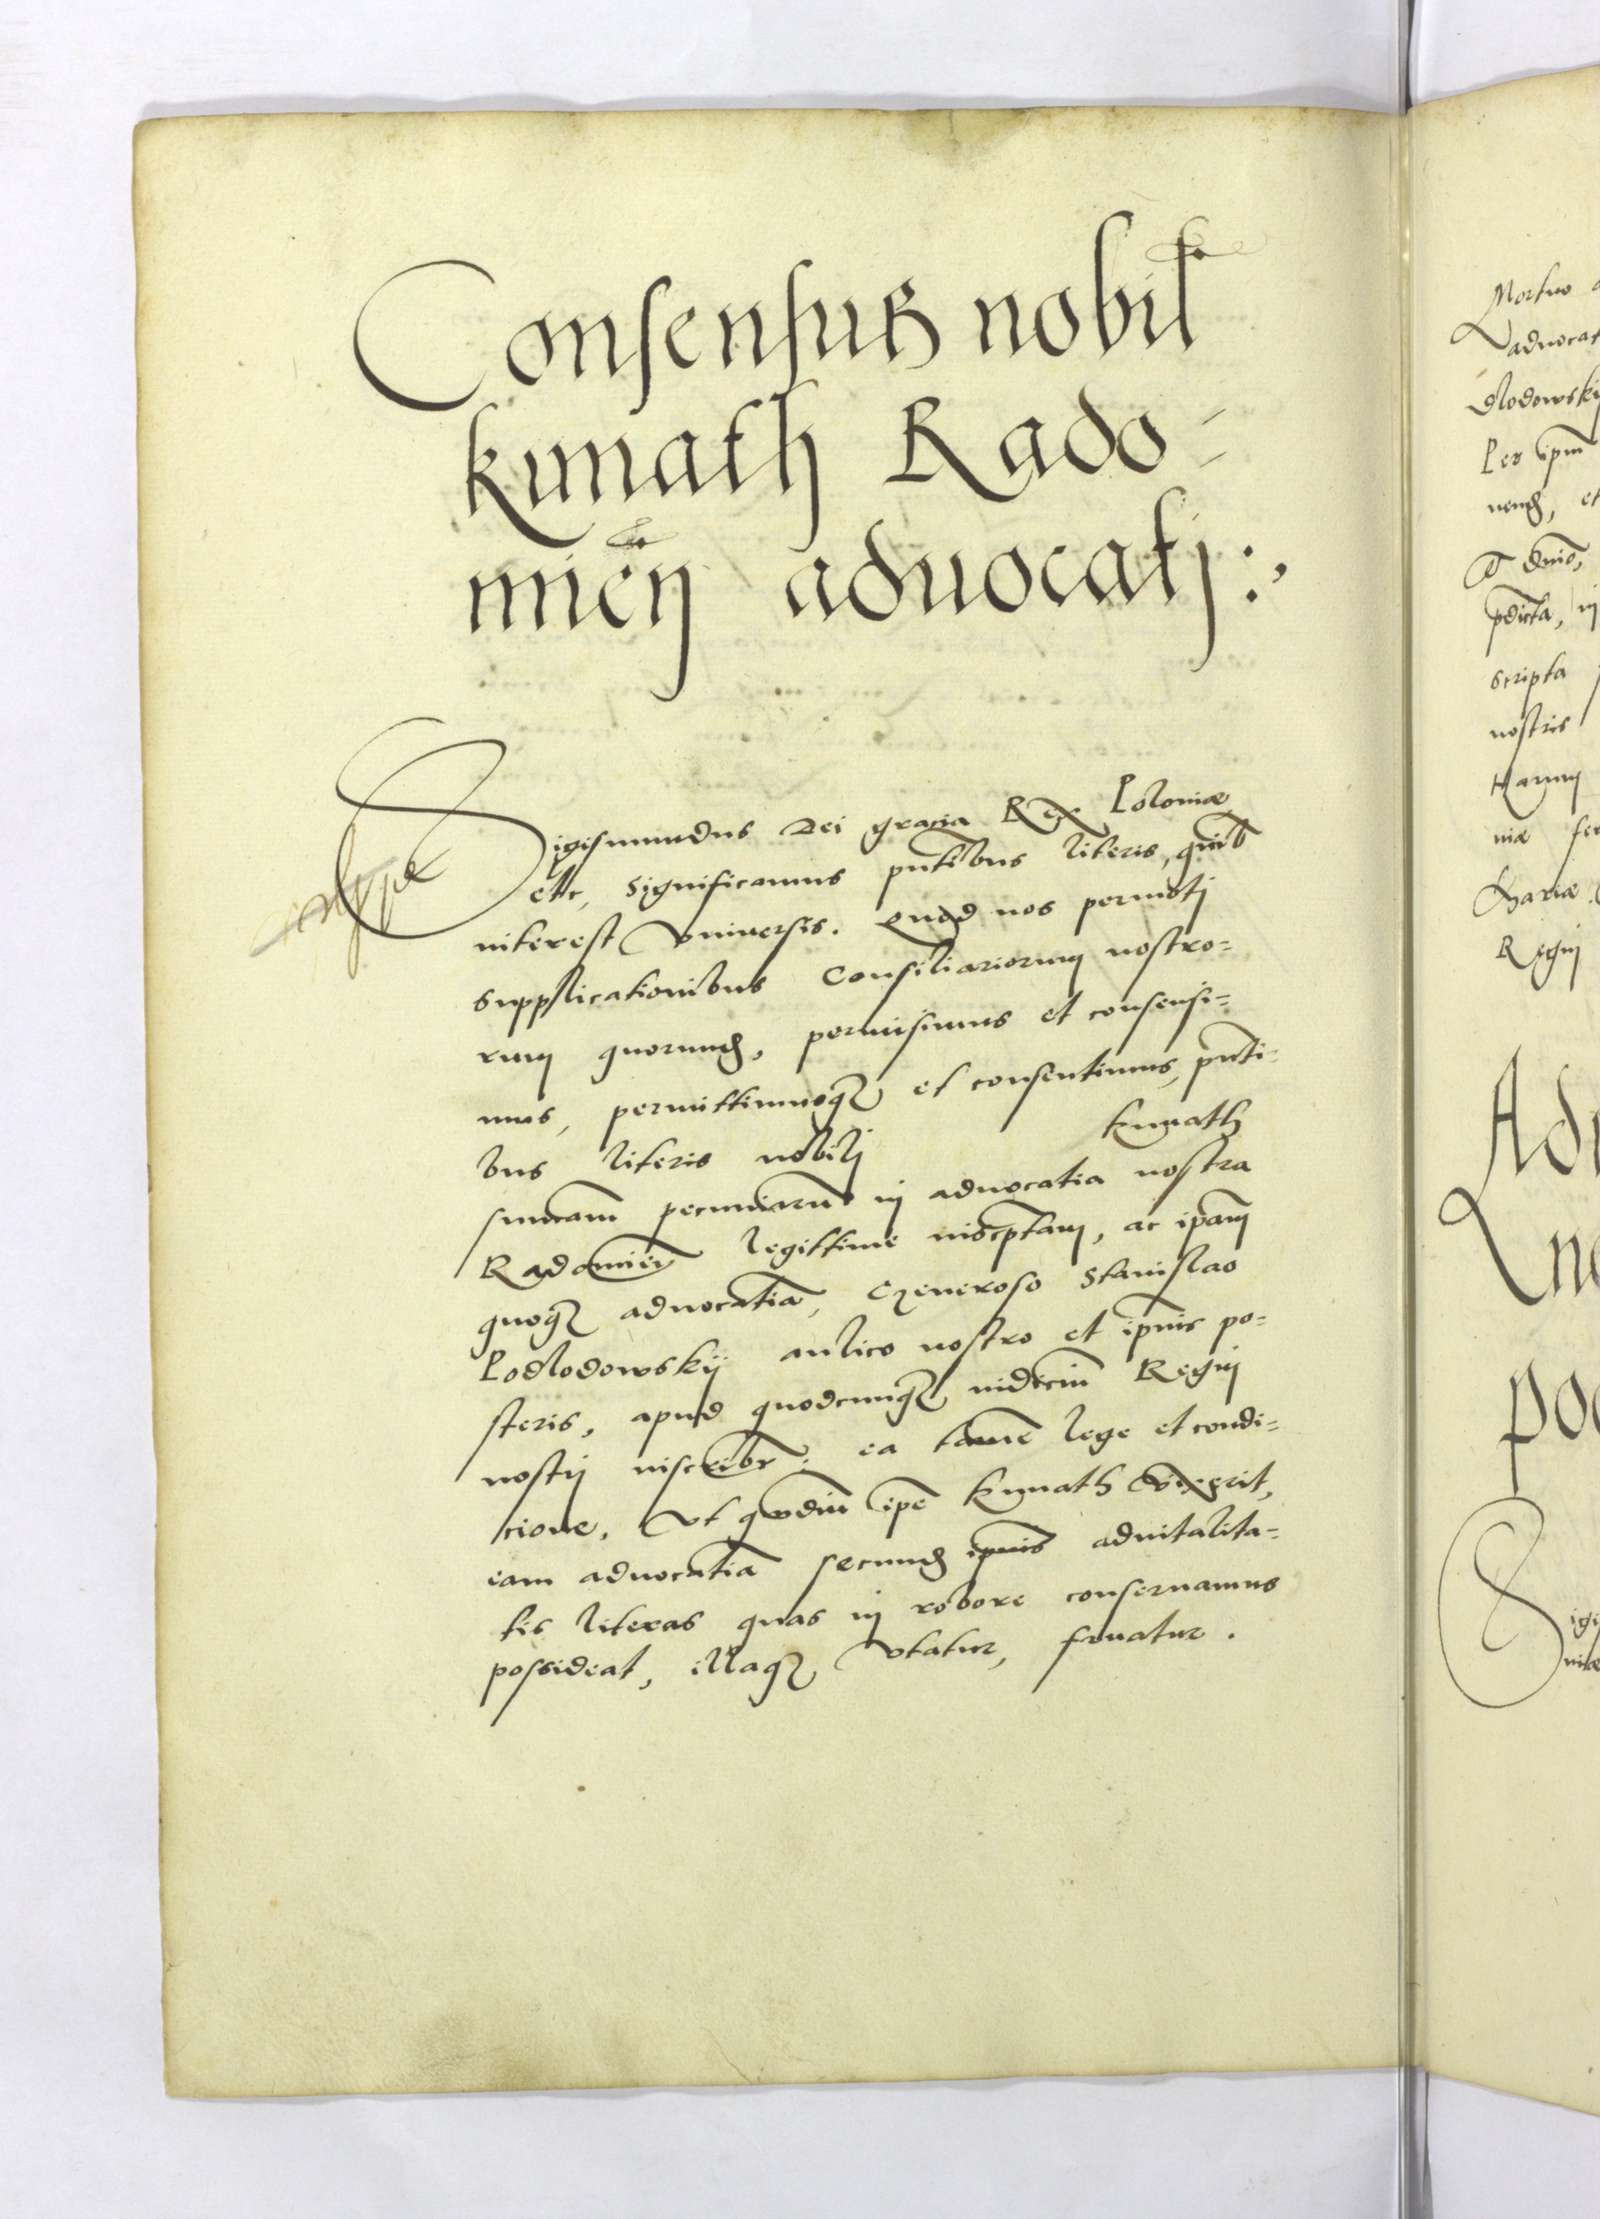 Consensus nobil
kunath Rado-
mien̄ aduocatj:
Sigismundus Dei gracia Rex Poloniæ
etc, Significamus pn̄tibus literis, quib
interest Vniuersis. Quod nos permotj
supplicationibus Consiliariorum nostro-
rum quorund, permisimus et consensi-
mus, permittimusqꝫ et consentimus, pn̄ti-
bus literis nobilj kunath
summam pecuniarū in aduocatia nostra
Radomien̄ legittime inscptam, ac ipam
quoqꝫ aduocatiā, Generoso Stanislao
Podlodowskij aulico nostro et ipius po-
steris, apud quodcunqꝫ iudiciū Regnj
nostrj inscribr̄: ea tamē lege et condi-
cione, Vt quodiu ipe kunath Vixerit,
eam aduocatiā secund ipius aduitalita-
tis literas quas in robore conseruamus
possideat, illaqꝫ Vtatur, fruatur.
Mortuo
aduocat
dlodowskj
Per ipm
nend, et
pdicta, in
scripta
nostris
Harum
niæ
Regnj
Adu
ne
poc
Sigi